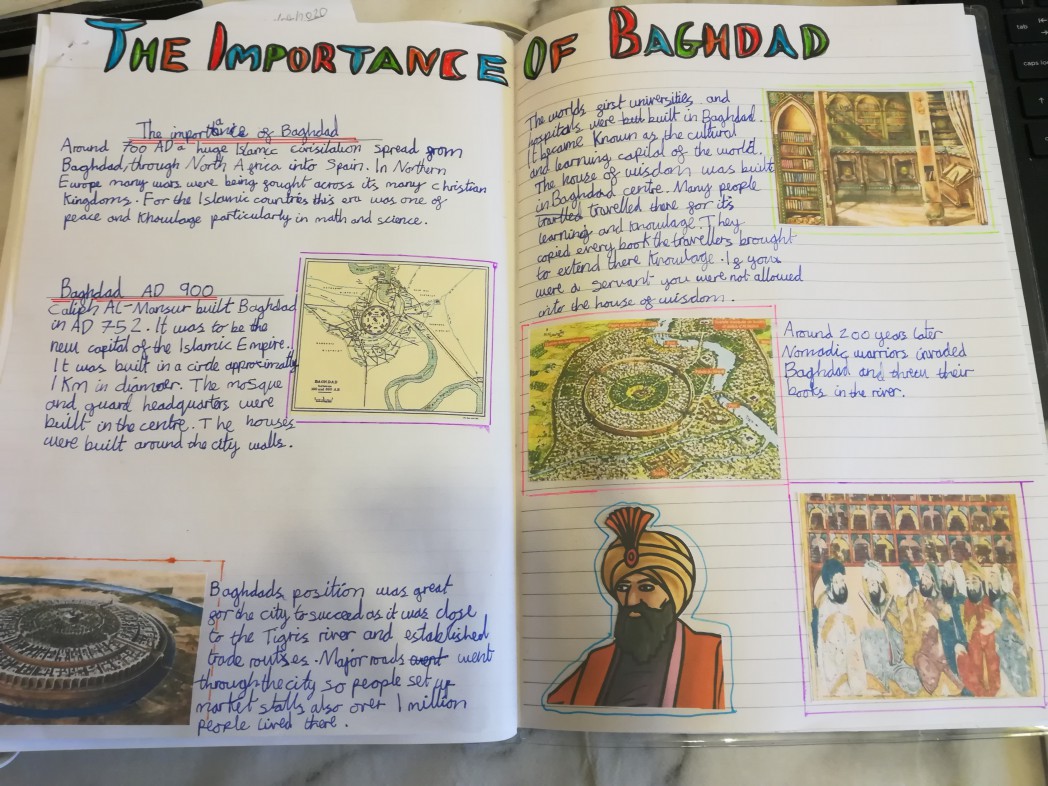 THE IMPORTANCE OF BAGHDAD
The importance of Baghdad
Around 700 AD a huge Islamic civisilation spread from
Baghdad through North Africa into Spain. In Northern
Europe many wars were being fought across its many christian
Kingdoms. For the Islamic countries this era was one of
peace and Knowlage particularly in math and science.
Baghdad AD 900
Caliph AL-Mansur built Baghdad
in AD 752. It was to be the
new capital of the Islamic Empire.
It was built in a circle approximatly
1 Km in diamoer. The mosque
and guard headquarters were
built in the centre. The houses
were built around the city walls.
BAGHDAD
Baghdads position was great
for the city to succeed as it was close
to the Tigris river and established
trade routses. Major roads went
through the city so people set up
market stalls also over 1 million
people lived there.
The worlds first universities and
hospitals were built in Baghdad.
It became Known as the cultural
and learning capital of the world.
The house of wisdom was built
in Baghdad centre. Many people
travelled there for its
learning and knowlage. They
copied every book the travellers brought
to extend there Knowlage. If you
were a servant you were not allowed
into the house of wisdom.
Around 200 years later
Nomadic warriors invaded
Baghdad and threw their
books in the river.
tab
caps lo